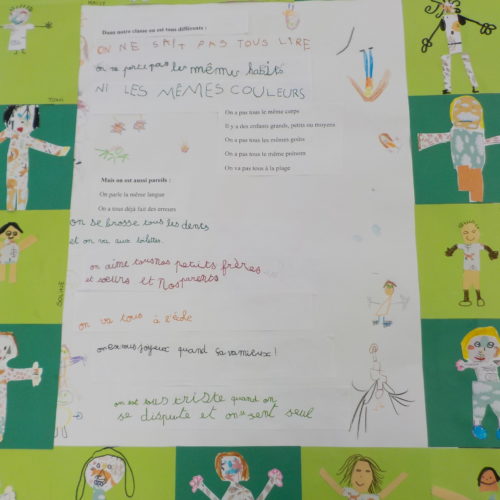 Dans notre classe on est tous différents :
ON NE SAIT PAS TOUS LIRE
on ne porte pas les même habits
NI LES MÊMES COULEURS
On a pas tous le même corps
Il y a des enfants grands, petits ou moyens
On a pas tous les mêmes goûts
On a pas tous le même prénom
On va pas tous à la plage
Mais on est aussi pareils :
On parle la même langue
On a tous déjà fait des erreurs
on se brosse tous les dents
et on va aux toilettes.
on aime tous nos petits frères
et sœurs et nos parents
on va tous à l'école
on est tous joyeux quand ça va mieux !
on est tous triste quand on
se dispute et on se sent seul